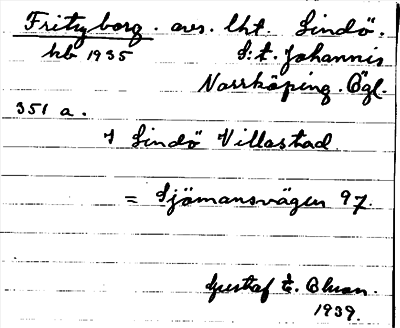 Fritzborg. avs. lht. Lindö.
kb 1935 S:t. Johannis
Norrköping. Ögl.
351 a.
I Lindö Villastad
= Sjömansvägen 97.
Gustaf E.
1939.